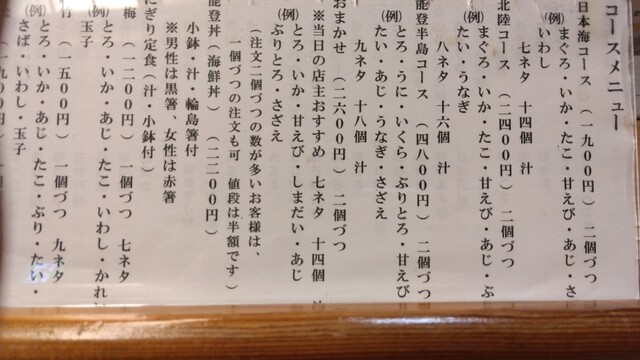 コースメニュー
日本海コース(一九〇〇円)二個づつ
(例)まぐろ・いか・たこ・甘えび・あじ・さ
いわし
七ネタ 十四個 汁
北陸コース(二四〇〇円)二個づつ
(例)まぐろ・いか・たこ・甘えび・あじ・ぶ
たい・うなぎ
八ネタ 十六個 汁
能登半島コース(四八〇〇円)二個づつ
(例)とろ・うに・いくら・ぶりとろ・甘えび
たい・あじ・うなぎ・さざえ
九ネタ 十八個 汁
おまかせ(二六〇〇円)二個づつ
※当日の店主おすすめ 七ネタ 十四個 汁
(例)とろ・いか・甘えび・しまだい・あじ
ぶりとろ・さざえ
(注文二個づつの数が多いお客様は、
一個づつの注文も可 値段は半額です)
能登丼(海鮮丼)(二二〇〇円)
小鉢・汁・輪島箸付
※男性は黒箸、女性は赤箸
にぎり定食(汁・小鉢付)
梅(一二〇〇円)一個づつ 七ネタ
(例)とろ・いか・あじ・たこ・いわし・かれい
玉子
竹(一五〇〇円)一個づつ 九ネタ
(例)とろ・いか・あじ・たこ・ぶり・たい・
さば・いわし・玉子
(一九〇〇円)